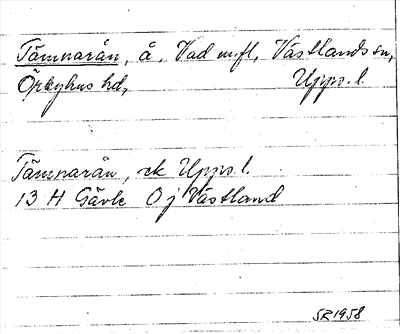 Tämnarån, å, Vad m.fl., Västlands sn,
Örbyhus hd, Upps. l.
Tämnarån, ek Upps. l.
13 H Gävle 0 j Västland
SR 1958